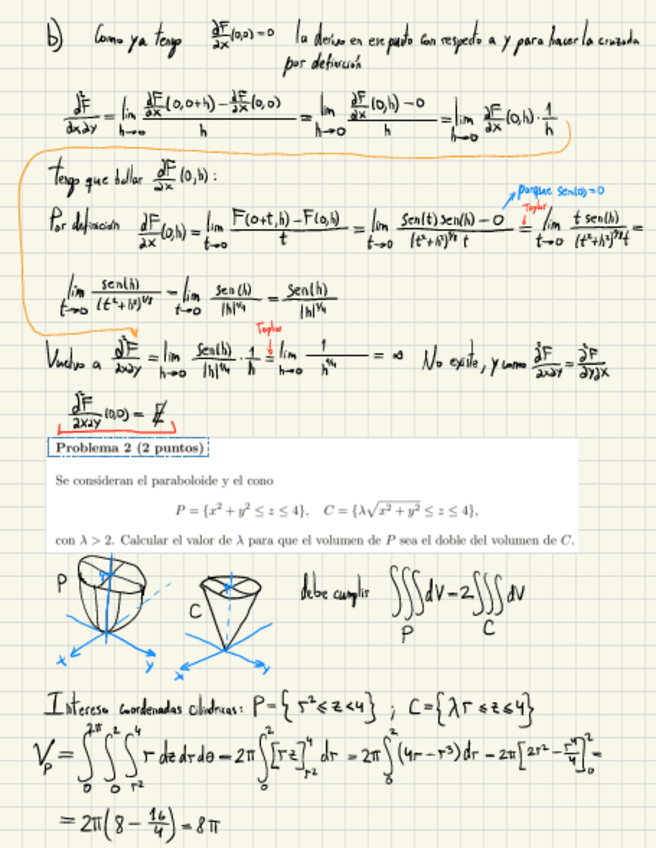 b) Como ya tengo ∂F/∂x(0,0)=0 la derivo en ese punto con respecto a y para hacer la cruzada
por definición
∂²F/∂x∂y = lim h→0 (∂F/∂x(0,0+h) − ∂F/∂x(0,0))/h = lim h→0 (∂F/∂x(0,h) − 0)/h = lim h→0 ∂F/∂x(0,h) · 1/h
Tengo que hallar ∂F/∂x(0,h):
porque sen(0)=0
Por definición ∂F/∂x(0,h) = lim t→0 (F(0+t,h) − F(0,h))/t = lim t→0 (sen(t) sen(h) − 0)/((t²+h²)^{1/8} t) = Taylor lim t→0 (t sen(h))/((t²+h²)^{1/8} t) =
lim t→0 sen(h)/(t²+h²)^{1/8} = lim t→0 sen(h)/|h|^{1/4} = sen(h)/|h|^{1/4}
Vuelvo a ∂²F/∂x∂y = lim h→0 sen(h)/|h|^{1/4} · 1/h = Taylor lim h→0 1/h^{1/4} = ∞ No existe, y como ∂²F/∂x∂y = ∂²F/∂y∂x
∂²F/∂x∂y(0,0) = ∄
Problema 2 (2 puntos)
Se consideran el paraboloide y el cono
P = {x² + y² ≤ z ≤ 4}, C = {λ√(x² + y²) ≤ z ≤ 4},
con λ > 2. Calcular el valor de λ para que el volumen de P sea el doble del volumen de C.
P
x
y
C
x
y
debe cumplir ∭_P dV = 2∭_C dV
Intereso coordenadas cilíndricas: P={ r² ≤ z < 4 } ; C={ λr ≤ z ≤ 4 }
V_P = ∫₀^{2π} ∫₀² ∫_{r²}^4 r dz dr dθ = 2π ∫₀² [rz]_{r²}^4 dr = 2π ∫₀² (4r − r³) dr = 2π [2r² − r⁴/4]₀² =
= 2π(8 − 16/4) = 8π